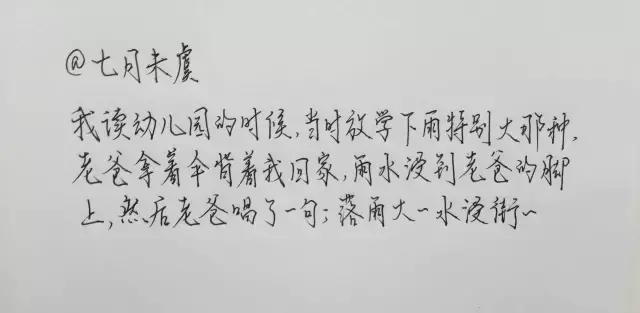 @七月未虞
我读幼儿园的时候,当时放学下雨特别大那种,
老爸拿着伞背着我回家,雨水浸到老爸的脚
上,然后老爸唱了一句;落雨大~水浸街~